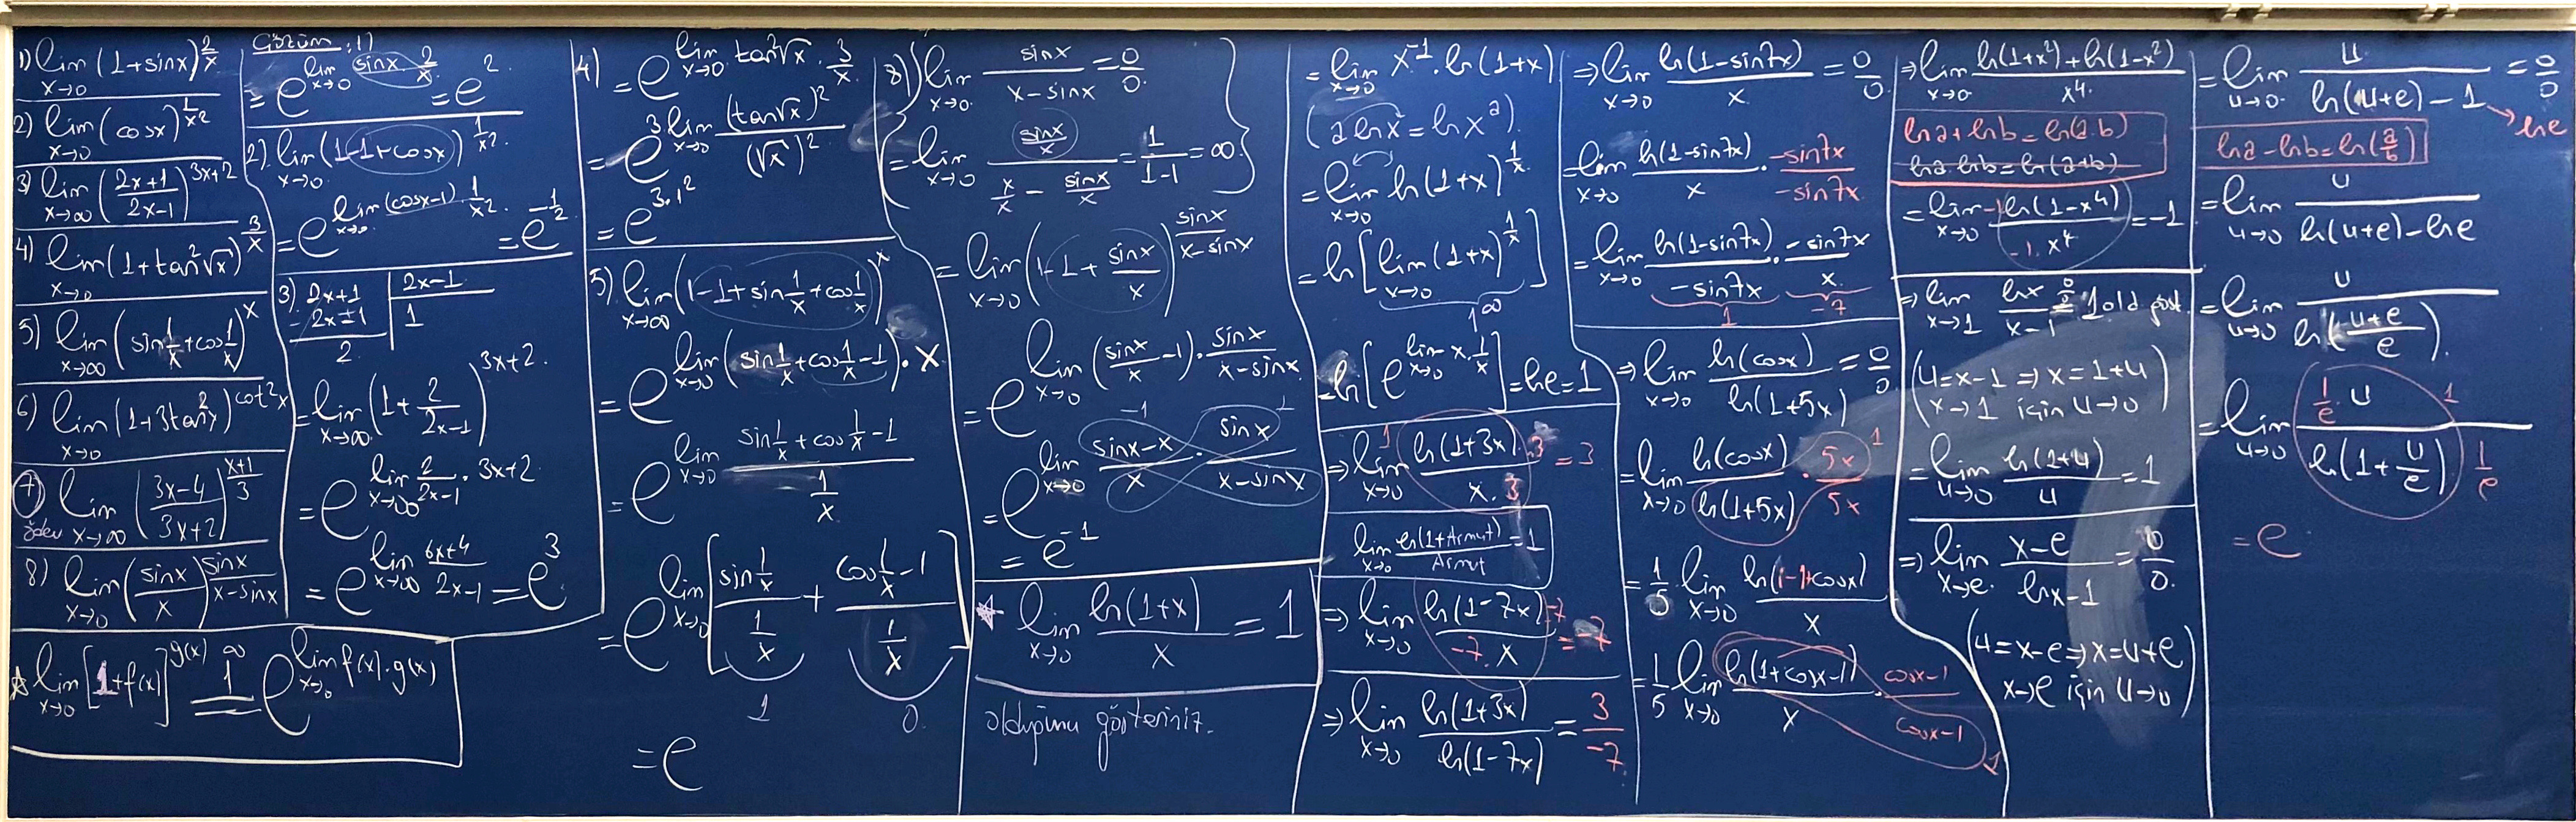 1) lim x→0 (1+sinx)^(2/x)
2) lim x→0 (cosx)^(1/x²)
3) lim x→∞ ((2x+1)/(2x-1))^(3x+2)
4) lim x→0 (1+tan²√x)^(3/x)
5) lim x→∞ (sin 1/x + cos 1/x)^x
6) lim x→0 (1+3tan²x)^(cot²x)
7) lim x→∞ ((3x-4)/(3x+2))^((x+1)/3)
ödev
8) lim x→0 (sinx/x)^(sinx/(x-sinx))
☆ lim x→0 [1+f(x)]^g(x) = 1^∞ e^(lim x→0 f(x).g(x))
Çözüm: 1)
= e^(lim x→0 sinx . 2/x) = e².
2) lim x→0 (1-1+cosx)^(1/x²).
= e^(lim x→0 (cosx-1).1/x².) = e^(-1/2)
3) 2x+1 | 2x-1
-2x±1 | 1
2
= lim x→∞ (1+ 2/(2x-1))^(3x+2).
= e^(lim x→∞ 2/(2x-1) . 3x+2.)
= e^(lim x→∞ (6x+4)/(2x-1)) = e³
4) = e^(lim x→0 tan²√x . 3/x.)
= e^(3 lim x→0 (tan√x)²/(√x)²)
= e^(3.1²)
5) lim x→∞ (1-1+sin 1/x + cos 1/x)^x
= e^(lim x→0 (sin 1/x + cos 1/x -1) . x)
= e^(lim x→0 (sin 1/x + cos 1/x -1)/(1/x))
= e^(lim x→0 [(sin 1/x)/(1/x) + (cos 1/x -1)/(1/x)])
1 0.
= e
8) (lim x→0 sinx/(x-sinx) = 0/0
= lim x→0 (sinx/x)/(x/x - sinx/x) = 1/(1-1) = ∞.)
= lim x→0 (1-1+ sinx/x)^(sinx/(x-sinx))
= e^(lim x→0 (sinx/x -1) . sinx/(x-sinx))
-1 1
= e^(lim x→0 (sinx-x)/x . sinx/(x-sinx))
= e^(-1)
★ lim x→0 ln(1+x)/x = 1
olduğunu gösteriniz.
= lim x→0 x^(-1) . ln(1+x)
(a lnx = lnx^a).
= lim x→0 ln(1+x)^(1/x).
= ln[lim x→0 (1+x)^(1/x)]
1^∞
= ln[e^(lim x→0 x.1/x)] = lne = 1
⇒ lim x→0 ln(1+3x)/(x.3) .3 = 3
1
lim x→0 ln(1+Armut)/Armut = 1
⇒ lim x→0 ln(1-7x)/(-7.x) .-7 = -7
⇒ lim x→0 ln(1+3x)/ln(1-7x) = 3/-7
⇒ lim x→0 ln(1-sin7x)/x = 0/0
= lim x→0 ln(1-sin7x)/x . -sin7x/-sin7x
= lim x→0 ln(1-sin7x)/-sin7x . -sin7x/x
1 -7
⇒ lim x→0 ln(cosx)/ln(1+5x) = 0/0
= lim x→0 ln(cosx)/ln(1+5x) . 5x/5x
1
= 1/5 lim x→0 ln(1-1+cosx)/x
= 1/5 lim x→0 ln(1+cosx-1)/x . (cosx-1)/(cosx-1)
1
⇒ lim x→0 (ln(1+x²)+ln(1-x²))/x⁴.
lna+lnb=ln(a.b)
lna.lnb=ln(a+b)
= lim x→0 -1 ln(1-x⁴)/(-1.x⁴) = -1
⇒ lim x→1 lnx/(x-1) 0/0 = 1 old. göst.
(u=x-1 ⇒ x=1+u
x→1 için u→0)
= lim u→0 ln(1+u)/u = 1
⇒ lim x→e. (x-e)/(lnx-1) = 0/0.
(u=x-e ⇒ x=u+e
x→e için u→0)
= lim u→0 u/(ln(u+e)-1) = 0/0
→ lne
lna-lnb=ln(a/b)
= lim u→0 u/(ln(u+e)-lne)
= lim u→0 u/ln((u+e)/e).
= lim u→0 (1/e . u)/(ln(1+ u/e) 1/e)
1
= e